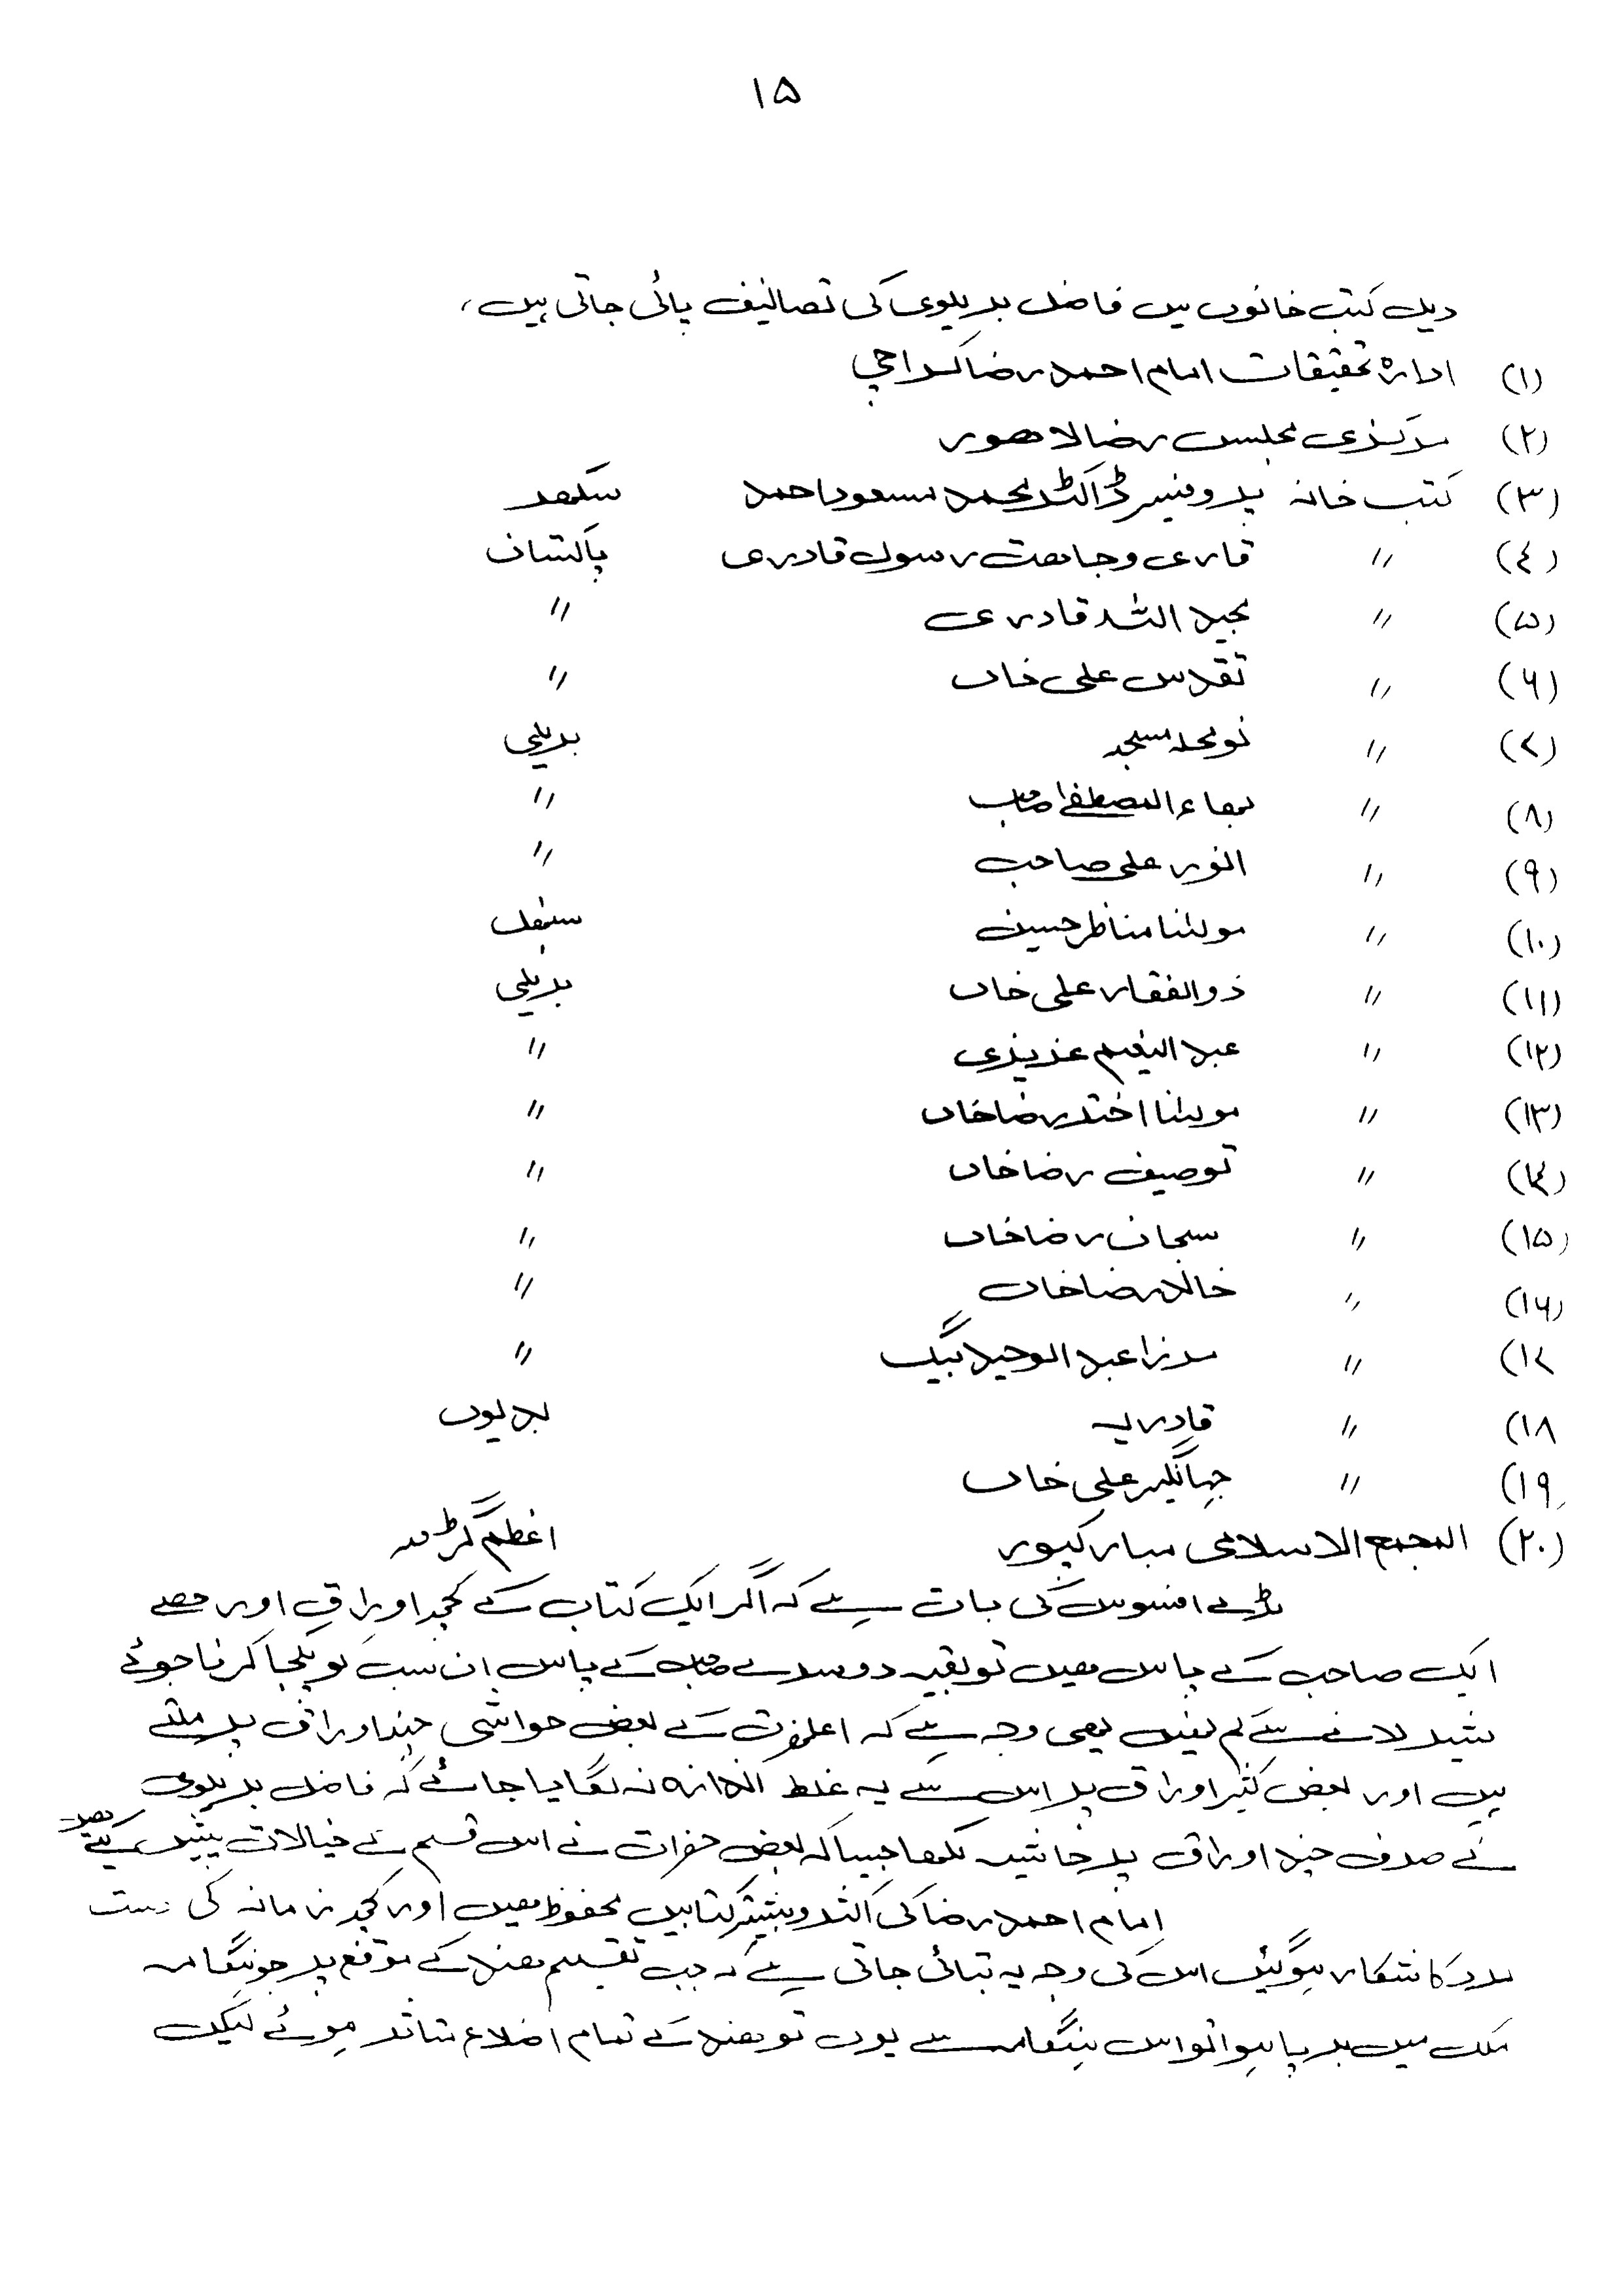 ۱۵
ذیل کتب خانوں میں فاضل بریلوی کی تصانیف پائی جاتی ہیں،
(۱) ادارہ تحقیقات امام احمد رضا کراچی
(۲) مرکزی مجلس رضا لاھور
(۳) کتب خانہ پروفیسر ڈاکٹر محمد مسعود احمد سکھر
(٤) 〃 قاری وجاھت رسول قادری پاکستان
(۵) 〃 مجید اللہ قادری 〃
(۶) 〃 تقدس علی خاں 〃
(۷) 〃 نومحلہ مسجد بریلی
(۸) 〃 بھاء المصطفےٰ صاحب 〃
(۹) 〃 انور علی صاحب 〃
(۱۰) 〃 مولٰنا مناظر حسین سنبھل
(۱۱) 〃 ذوالفقار علی خاں بریلی
(۱۲) 〃 عبد النعیم عزیزی 〃
(۱۳) 〃 مولٰنا اختر رضا خاں 〃
(۱٤) 〃 توصیف رضا خاں 〃
(۱۵) 〃 سبحان رضا خاں 〃
(۱۶) 〃 خالد رضا خاں 〃
(۱۷ 〃 مرزا عبد الوحید بیگ 〃
(۱۸ 〃 قادریہ بدایوں
(۱۹ 〃 جہانگیر علی خاں
(۲۰) المجمع الاسلامی مبارکپور اعظم گڑھ
بڑے افسوس کی بات ہے کہ اگر ایک کتاب کے کچھ اوراق اور حصے
ایک صاحب کے پاس ھیں تو بقیہ دوسرے صاحب کے پاس ان سب کو یکجا کرنا جوئے
شیر لانے سے کم نہیں یھی وجہ ہے کہ اعلحضرت کے بعض حواشی چند اوراق پر ملتے
ہیں اور بعض کثیر اوراق پر اس سے یہ غلط اندازہ نہ لگایا جائے کہ فاضل بریلوی
نے صرف چند اوراق پر حاشیہ لکھا جیسا کہ بعض حضرات نے اس قسم کے خیالات پیش کیئے ھیں
امام احمد رضا کی اکثر و بیشتر کتابیں محفوظ ھیں اور کچھ زمانہ کی دست
برد کا شکار ہوگئیں اس کی وجہ یہ بتائی جاتی ہے کہ جب تقسیم ھند کے موقع پر جو ہنگامہ
ملک میں برپا ہوا تو اس ہنگامہ سے یوں تو ھند کے تمام اضلاع متاثر ہوئے لیکن